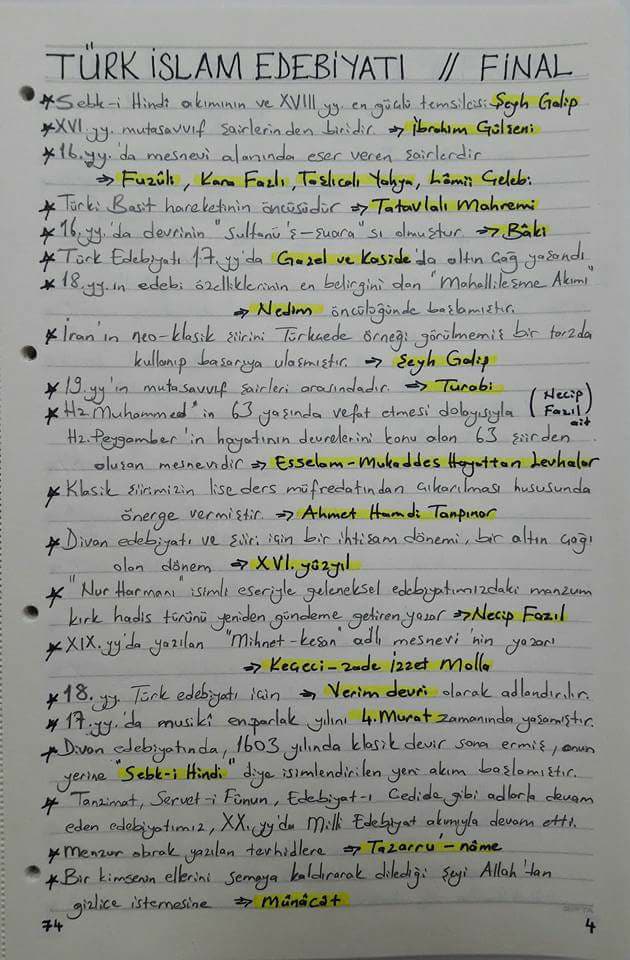 TÜRK İSLAM EDEBİYATI // FİNAL
★ Sebk-i Hindi akımının ve XVIII yy. en güçlü temsilcisi Şeyh Galip
★ XVI. yy. mutasavvıf şairlerinden biridir ⇒ İbrahim Gülşeni
★ 16. yy.'da mesnevi alanında eser veren şairlerdir
⇒ Fuzûli, Kara Fazlı, Taşlıcalı Yahya, Lâmii Çelebi
★ Türki Basit hareketinin öncüsüdür ⇒ Tatavlalı Mahremi
★ 16. yy.'da devrinin "sultanü'ş-şuara" sı olmuştur. ⇒ Bâki
★ Türk Edebiyatı 17. yy'da Gazel ve Kaside'da altın çağ yaşandı
★ 18. yy.ın edebi özelliklerinin en belirgini olan "Mahallileşme Akımı"
⇒ Nedim öncülüğünde başlamıştır.
★ İran'ın neo-klasik şiirini Türkçede örneği görülmemiş bir tarzda
kullanıp başarıya ulaşmıştır. ⇒ Şeyh Galip
★ 19. yy'ın mutasavvıf şairleri arasındadır. ⇒ Turabi
★ Hz Muhammed"in 63 yaşında vefat etmesi dolayısıyla (Necip Fazıl ait)
Hz. Peygamber'in hayatının devrelerini konu alan 63 şiirden
oluşan mesnevidir ⇒ Esselam-Mukaddes Hayattan Levhalar
★ Klasik şiirimizin lise ders müfredatından çıkarılması hususunda
önerge vermiştir. ⇒ Ahmet Hamdi Tanpınar
★ Divan edebiyatı ve şiiri için bir ihtişam dönemi, bir altın çağı
olan dönem ⇒ XVI. yüzyıl
★ "Nur Harmanı" isimli eseriyle geleneksel edebiyatımızdaki manzum
kırk hadis türünü yeniden gündeme getiren yazar ⇒ Necip Fazıl
★ XIX. yy'da yazılan "Mihnet-keşan" adlı mesnevi'nin yazarı
⇒ Keçeci-zade İzzet Molla
★ 18. yy. Türk edebiyatı için ⇒ Verim devri olarak adlandırılır.
★ 17. yy.'da musikî en parlak yılını 4. Murat zamanında yaşamıştır.
★ Divan edebiyatında, 1603 yılında klasik devir sona ermiş, onun
yerine "Sebk-i Hindi" diye isimlendirilen yeni akım başlamıştır.
★ Tanzimat, Servet-i Fünun, Edebiyat-ı Cedide gibi adlarla devam
eden edebiyatımız, XX. yy'da Milli Edebiyat akımıyla devam etti.
★ Menzur olarak yazılan tevhidlere ⇒ Tazarru'-nâme
★ Bir kimsenin ellerini semaya kaldırarak dilediği şeyi Allah'tan
gizlice istemesine ⇒ Münâcât
74 4